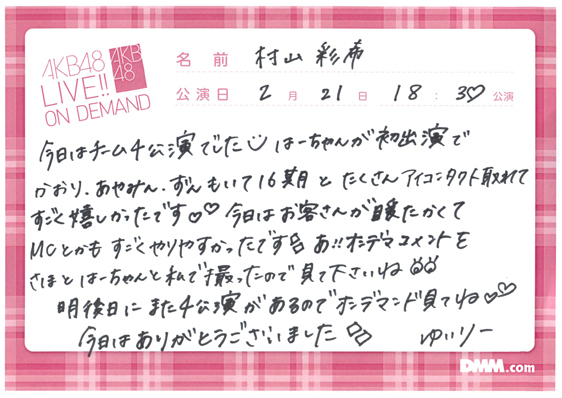 AKB48
LIVE!!
ON DEMAND
AKB
48
名前 村山彩希
公演日 2月21日 18:30公演
今日はチーム4公演でした はーちゃんが初出演で
かおり、あやみん、ずんもいて16期とたくさんアイコンタクト取れて
すごく嬉しかったです♡♡ 今日はお客さんが暖たかくて
MCとかもすごくやりやすかったです あ!!オンデマコメントを
さほとはーちゃんと私で撮ったので見て下さいね
明後日にまた4公演があるのでオンデマンド見てね♡♡
今日はありがとうございました ゆいりー
DMM.com